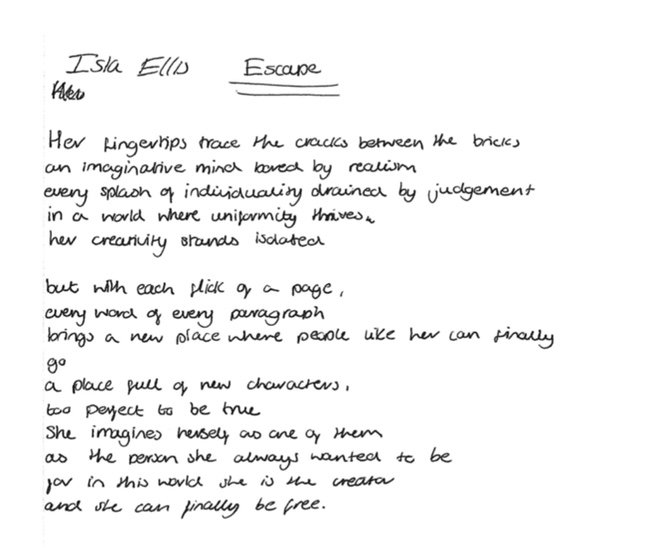 Isla Ellis Escape
Her
Her fingertips trace the cracks between the bricks
an imaginative mind bored by realism
every splash of individuality drained by judgement
in a world where uniformity thrives,
her creativity stands isolated
but with each flick of a page,
every word of every paragraph
brings a new place where people like her can finally
go
a place full of new characters,
too perfect to be true
She imagines herself as one of them
as the person she always wanted to be
for in this world she is the creator
and she can finally be free.